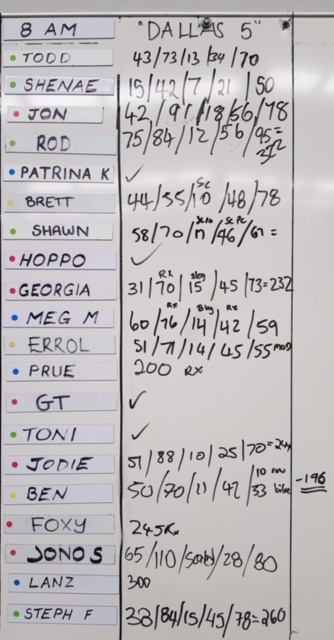 8 AM "DALLAS 5"
TODD 43/73/13/34/70
SHENAE 15/42/7/21/50
JON 42/91/18/56/78
ROD 75/84/12/56/95=
PATRINA K ✓
BRETT 44/55/10/48/78
SHAWN 58/70/11/46/61=
HOPPO ✓
GEORGIA 31/70/15/45/73=232
MEG M 60/76/14/42/59
ERROL 51/71/14/45/55 mod
PRUE 200 RX
GT ✓
TONI ✓
JODIE 51/88/10/25/70=
BEN 50/70/11/42/33 -196
FOXY 245 Rx
JONO S 65/110/ /28/80
LANZ 300
STEPH F 38/84/15/45/78=260